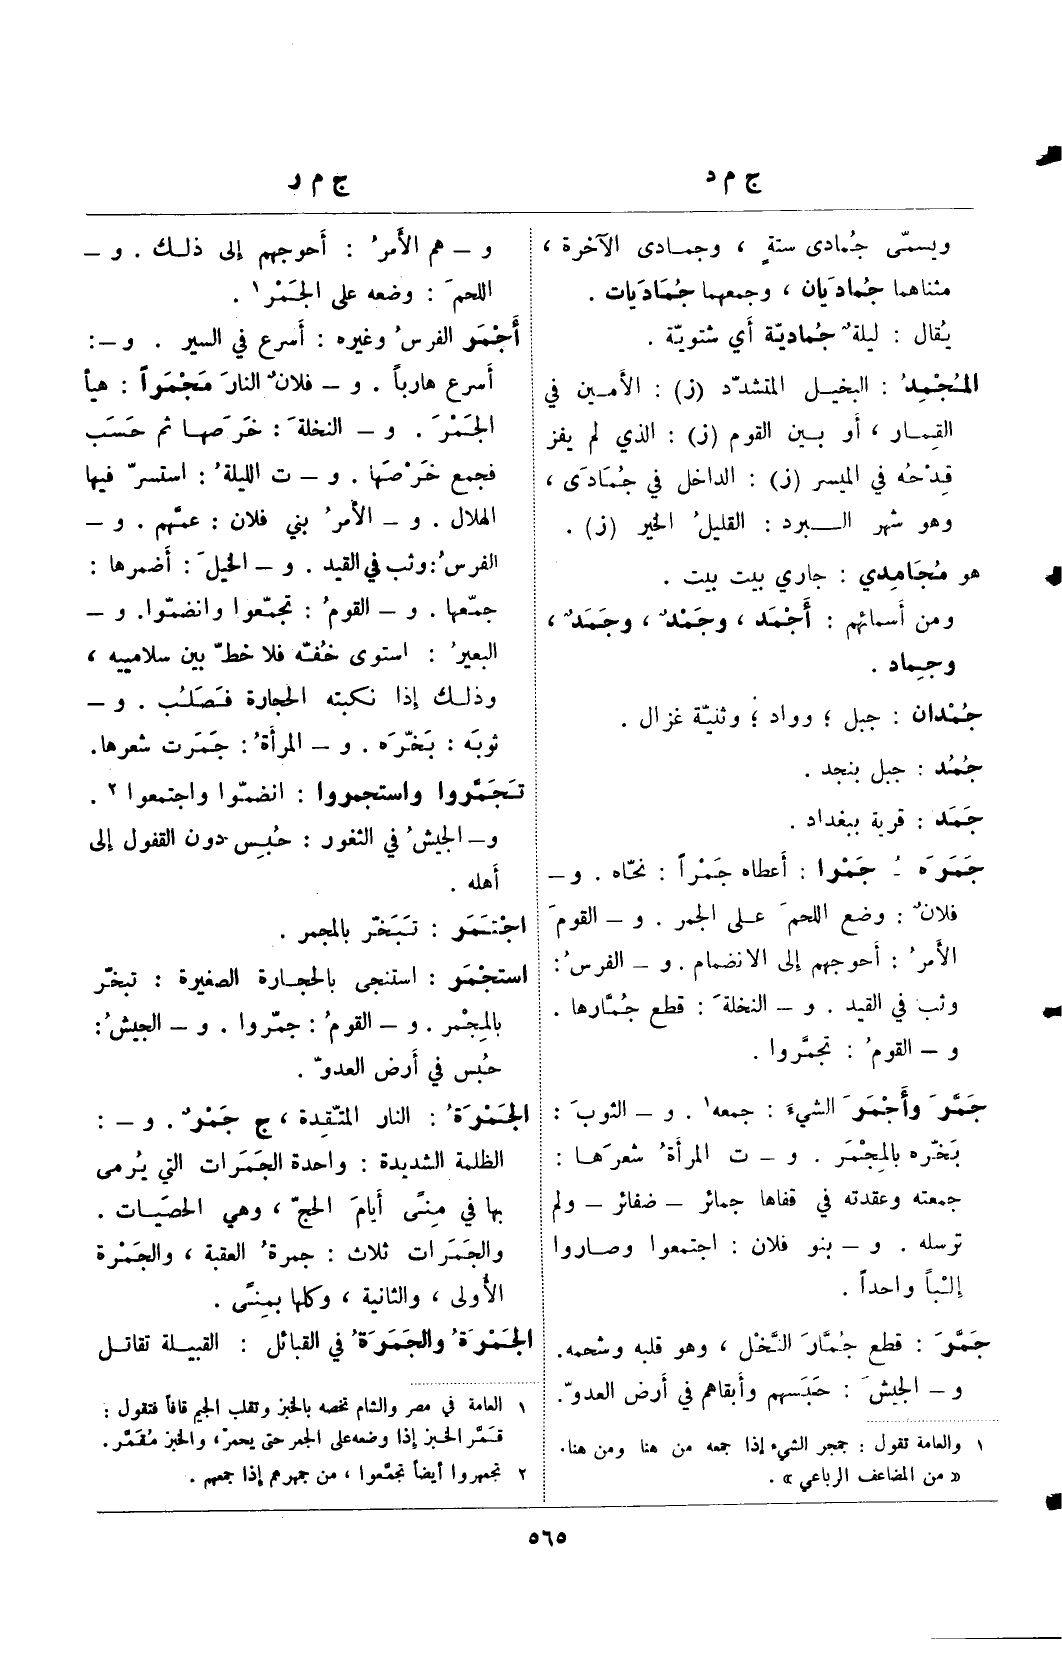 ج م د
ج م ر
ويسمّى جُمادى ستةٍ ، وجمادى الآخرة ،
مثناهما جُماديَان ، وجمعهما جُمَادَيَات .
يُقال : ليلةٌ جُماديّة أي شتويّة .
المُجْمِدُ : البخيل المتشدّد (ز) : الأمين في
القِمار ، أو بين القوم (ز) : الذي لم يفز
قِدْحُه في الميسر (ز) : الداخل في جُمَادَى ،
وهو شهر البرد : القليلُ الخير (ز) .
هو مُجَامِدي : جاري بيت بيت .
ومن أسمائهم : أَجْمَد ، وجَمْدٌ ، وجَمَدٌ ،
وجِماد .
جُمْدان : جبل ؛ وواد ؛ وثنيّة غزال .
جُمُد : جبل بنجد .
جَمَد : قرية ببغداد .
جَمَرَه ُ جَمْرا : أعطاه جَمْراً : نحّاه . و —
فلانٌ : وضع اللحمَ على الجمر . و — القومَ
الأمرُ : أحوجهم إلى الانضمام . و — الفرسُ :
وثب في القيد . و — النخلةَ : قطع جُمَّارها .
و — القومُ : تجمَّروا .
جَمَّرَ وأَجْمَرَ الشيءَ : جمعه١ . و — الثوبَ :
بَخّره بالمِجْمَر . و — ت المرأةُ شعرَها :
جمعته وعقدته في قفاها جمائر — ضفائر — ولم
ترسله . و — بنو فلان : اجتمعوا وصاروا
إلْباً واحداً .
جَمَّرَ : قطع جُمَّارَ النَّخْل ، وهو قلبه وشحمه.
و — الجيشَ : حَبَسهم وأبقاهم في أرض العدوّ.
١ والعامة تقول : جمجر الشيء إذا جمعه من هنا ومن هنا.
« من المضاعف الرباعي » .
و — هم الأمرُ : أحوجهم إلى ذلك . و —
اللحمَ : وضعه على الجَمْر١ .
أَجْمَر الفرسُ وغيره : أسرع في السير . و —:
أسرع هارباً . و — فلانٌ النارَ مَجْمَراً : هيأ
الجَمْرَ . و — النخلةَ : خَرَصها ثم حَسَب
فجمع خَرْصَها . و — ت الليلةُ : استسرّ فيها
الهلال . و — الأمرُ بني فلان : عمَّهم . و —
الفرسُ : وثب في القيد . و — الخيلَ : أضمرها :
جمّعها . و — القومُ : تجمّعوا وانضمّوا. و —
البعيرُ : استوى خُفّه فلا خطّ بين سلامييه ،
وذلك إذا نكبته الحجارة فَصَلُب . و —
ثوبَه : بَخّرَه . و — المرأةُ : جَمَرت شعرها.
تَجَمَّروا واستجمروا : انضمّوا واجتمعوا ٢ .
و — الجيشُ في الثغور : حُبِس دون القفول إلى
أهله .
اجْتَمَر : تَبَخّر بالمجمر .
استجْمَر : استنجى بالحجارة الصغيرة : تبخّر
بالمِجْمر . و — القومُ : جمّروا . و — الجيشُ :
حُبس في أرض العدوّ .
الجَمْرَةُ : النار المتّقِدة ، ج جَمْرٌ . و — :
الظلمة الشديدة : واحدة الجَمَرات التي يُرمى
بها في مِنًى أيامَ الحجّ ، وهي الحصَيات .
والجَمَرات ثلاث : جمرةُ العقبة ، والجَمْرة
الأولى ، والثانية ، وكلها بمِنًى .
الجَمْرَةُ والجَمَرَةُ في القبائل : القبيلة تقاتل
١ العامة في مصر والشام تخصه بالخبز وتقلب الجيم قافاً فتقول :
قَمَّر الخبز إذا وضعه على الجمر حتى يحمرّ ، والخبز مُقَمَّر .
٢ تجمهروا أيضاً تجمَّعوا ، من جمهرهم إذا جمعهم .
٥٦٥